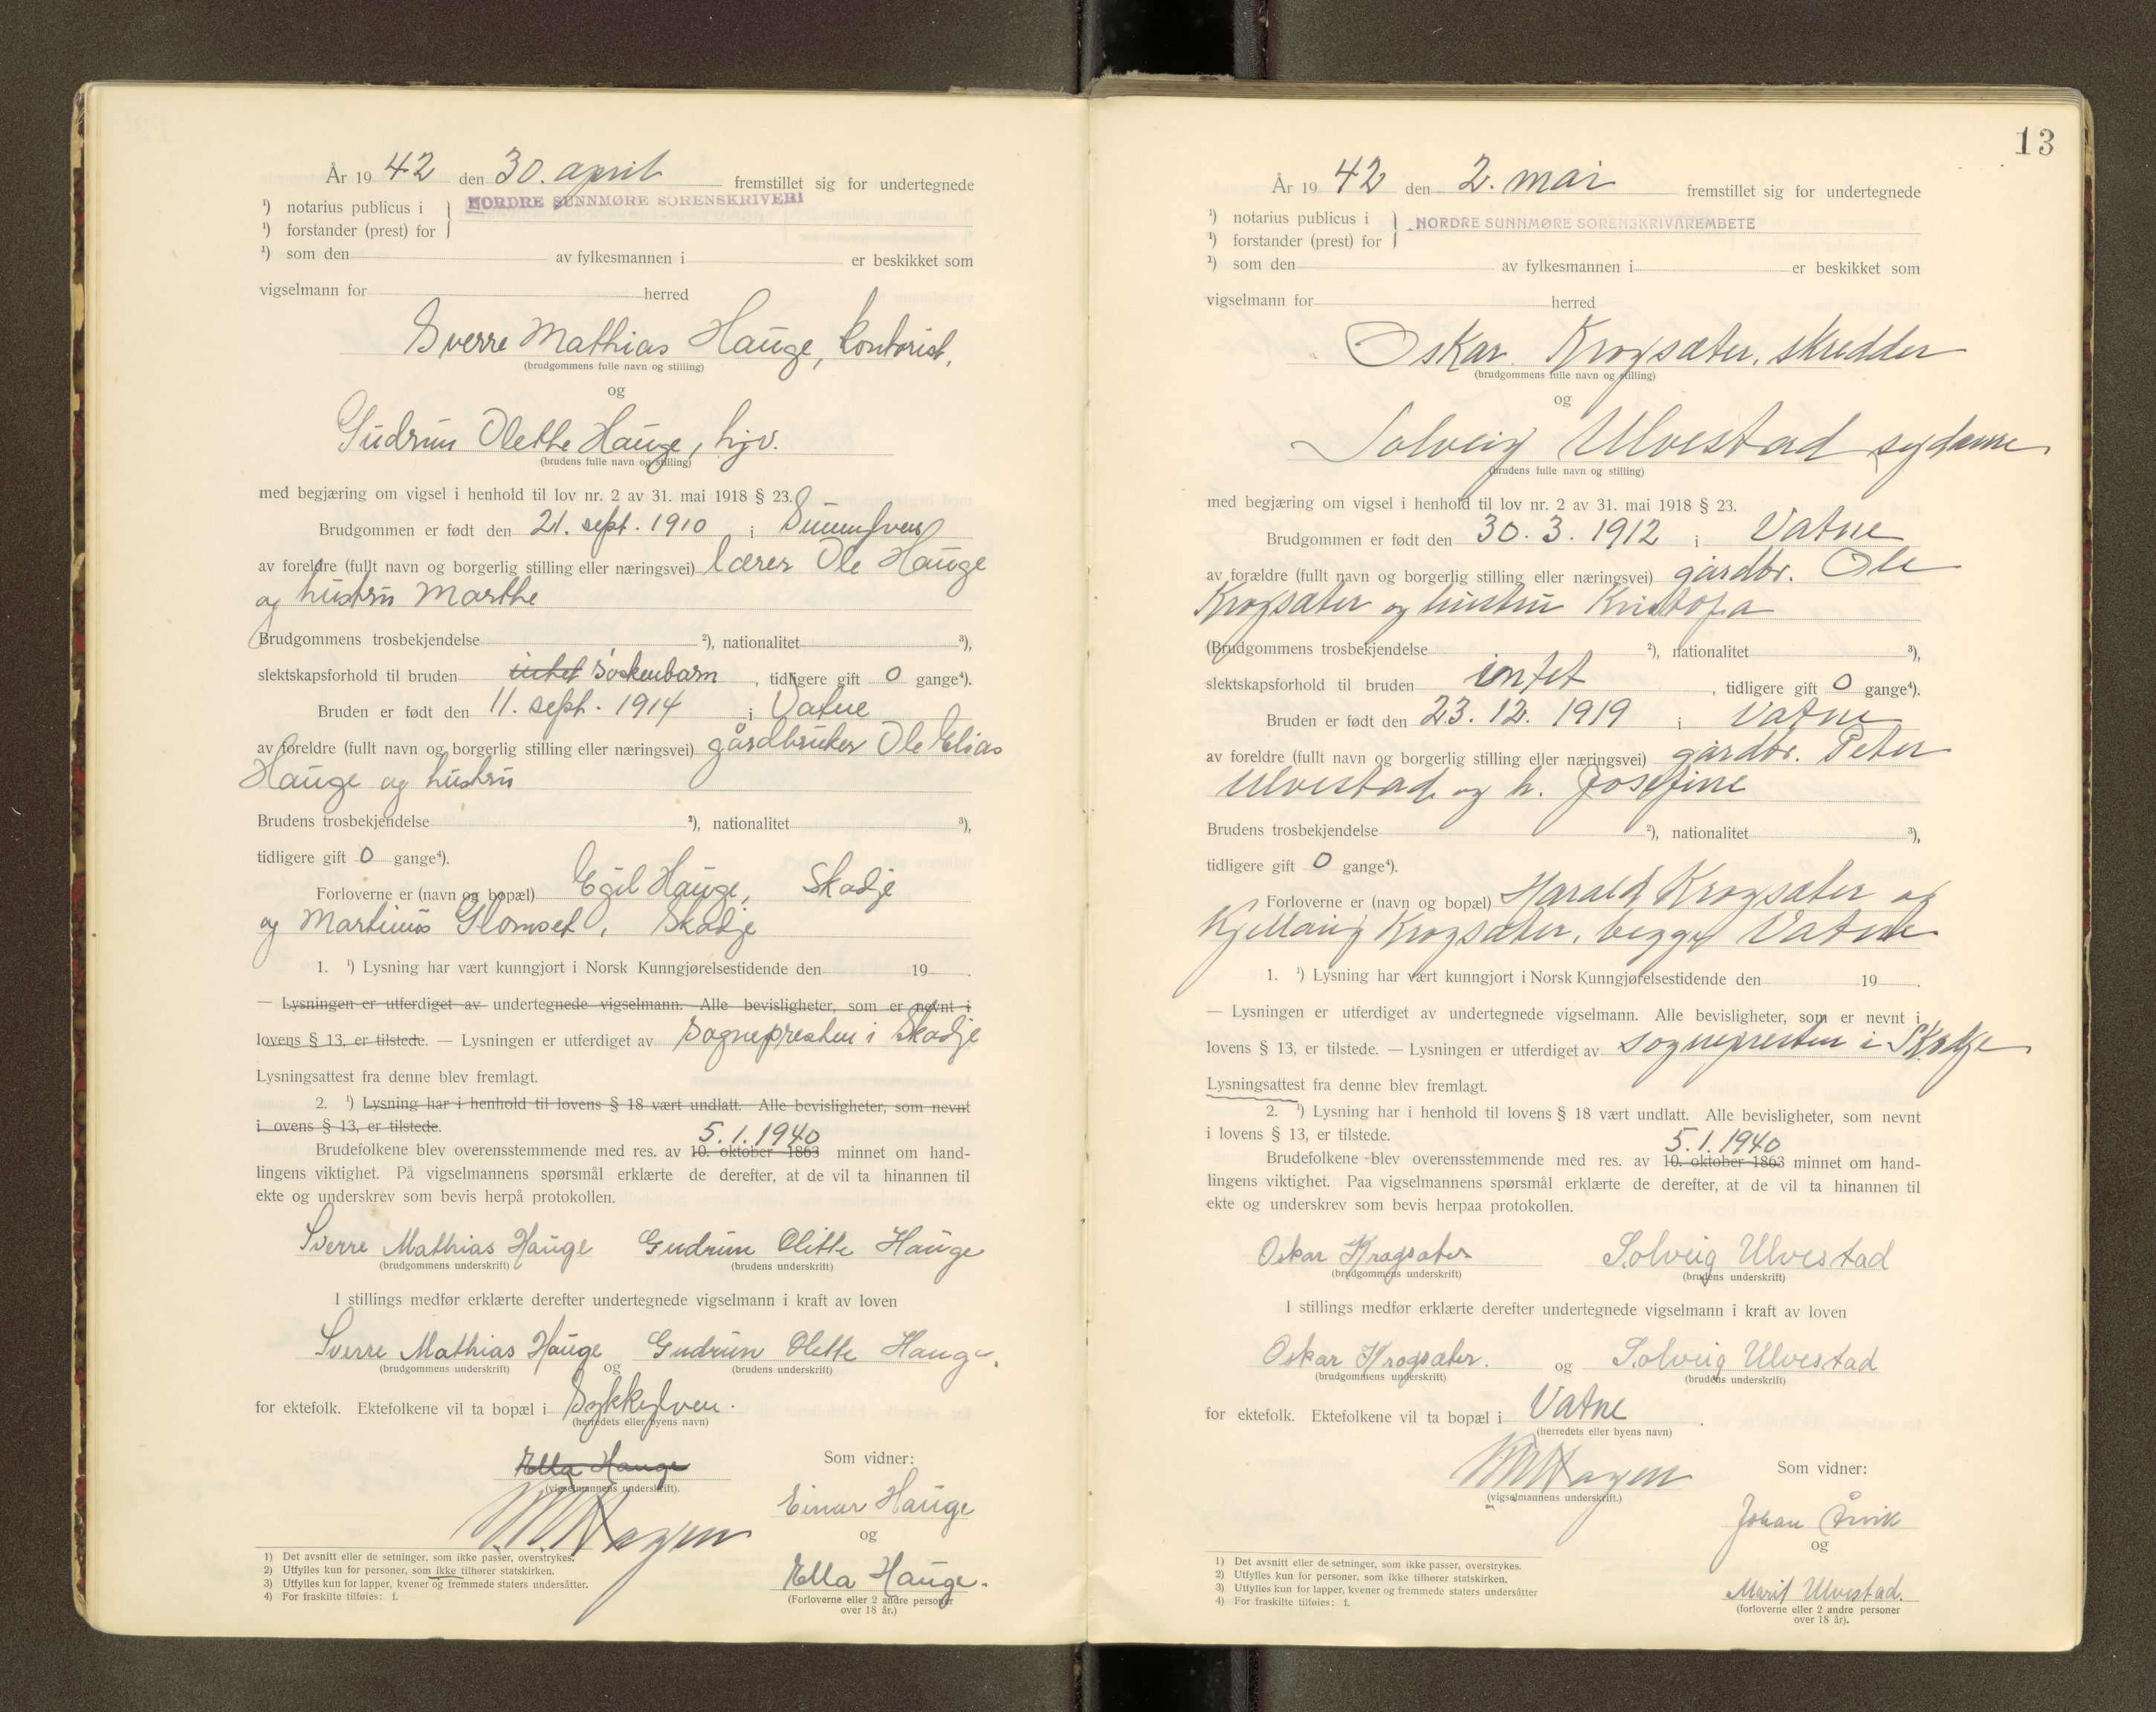 År 19 42 den 30. april fremstillet sig for undertegnede
¹) notarius publicus i } NORDRE SUNNMØRE SORENSKRIVERI
¹) forstander (prest) for
¹) som den av fylkesmannen i er beskikket som
vigselmann for herred
Sverre Mathias Hauge, kontorist,
(brudgommens fulle navn og stilling)
og
Gudrun Olette Hauge, hjv.
(brudens fulle navn og stilling)
med begjæring om vigsel i henhold til lov nr. 2 av 31. mai 1918 § 23.
Brudgommen er født den 21. sept. 1910 i
av foreldre (fullt navn og borgerlig stilling eller næringsvei) lærer Ole Hauge
og hustru Marthe
Brudgommens trosbekjendelse ²), nationalitet ³),
slektskapsforhold til bruden intet søskenbarn, tidligere gift 0 gange⁴).
Bruden er født den 11. sept. 1914 i Vatne
av foreldre (fullt navn og borgerlig stilling eller næringsvei) gårdbruker Ole Elias
Hauge og hustru
Brudens trosbekjendelse ²), nationalitet ³),
tidligere gift 0 gange⁴).
Forloverne er (navn og bopæl) Egil Hauge, Skodje
og Martinus Glomset, Skodje
1. ¹) Lysning har vært kunngjort i Norsk Kunngjørelsestidende den 19 .
— Lysningen er utferdiget av undertegnede vigselmann. Alle bevisligheter, som er nevnt i
lovens § 13, er tilstede. — Lysningen er utferdiget av sognepresten i Skodje
Lysningsattest fra denne blev fremlagt.
2. ¹) Lysning har i henhold til lovens § 18 vært undlatt. Alle bevisligheter, som nevnt
i ovens § 13, er tilstede.
5.1.1940
Brudefolkene blev overensstemmende med res. av 10. oktober 1863 minnet om hand-
lingens viktighet. På vigselmannens spørsmål erklærte de derefter, at de vil ta hinannen til
ekte og underskrev som bevis herpå protokollen.
Sverre Mathias Hauge Gudrun Olette Hauge
(brudgommens underskrift) (brudens underskrift)
I stillings medfør erklærte derefter undertegnede vigselmann i kraft av loven
Sverre Mathias Hauge Gudrun Olette Hauge.
(brudgommens underskrift) og (brudens underskrift)
for ektefolk. Ektefolkene vil ta bopæl i Sykkylven.
(herredets eller byens navn)
Ella Hauge
(vigselmannens underskrift).
Hagen
Som vidner:
Einar Hauge
og
Ella Hauge.
(Forloverne eller 2 andre personer
over 18 år.)
1) Det avsnitt eller de setninger, som ikke passer, overstrykes.
2) Utfylles kun for personer, som ikke tilhører statskirken.
3) Utfylles kun for lapper, kvener og fremmede staters undersåtter.
4) For fraskilte tilføies: f.
13
År 19 42 den 2. mai fremstillet sig for undertegnede
¹) notarius publicus i } NORDRE SUNNMØRE SORENSKRIVAREMBETE
¹) forstander (prest) for
¹) som den av fylkesmannen i er beskikket som
vigselmann for herred
Oskar Krogsæter, skredder
(brudgommens fulle navn og stilling)
og
Solveig Ulvestad sydame
(brudens fulle navn og stilling)
med begjæring om vigsel i henhold til lov nr. 2 av 31. mai 1918 § 23.
Brudgommen er født den 30. 3. 1912 i Vatne
av forældre (fullt navn og borgerlig stilling eller næringsvei) gårdbr. Ole
Krogsæter og hustru Kristofa
(Brudgommens trosbekjendelse ²), nationalitet ³),
slektskapsforhold til bruden intet, tidligere gift 0 gange⁴).
Bruden er født den 23. 12. 1919 i Vatne
av foreldre (fullt navn og borgerlig stilling eller næringsvei) gårdbr. Peter
Ulvestad og h. Josefine
Brudens trosbekjendelse ²), nationalitet ³),
tidligere gift 0 gange⁴).
Forloverne er (navn og bopæl) Harald Krogsæter og
Kjellaug Krogsæter, begge Vatne
1. ¹) Lysning har vært kunngjort i Norsk Kunngjørelsestidende den 19 .
— Lysningen er utferdiget av undertegnede vigselmann. Alle bevisligheter, som er nevnt i
lovens § 13, er tilstede. — Lysningen er utferdiget av sognepresten i Skodje
Lysningsattest fra denne blev fremlagt.
2. ¹) Lysning har i henhold til lovens § 18 vært undlatt. Alle bevisligheter, som nevnt
i lovens § 13, er tilstede.
5.1.1940
Brudefolkene blev overensstemmende med res. av 10. oktober 1863 minnet om hand-
lingens viktighet. Paa vigselmannens spørsmål erklærte de derefter, at de vil ta hinannen til
ekte og underskrev som bevis herpaa protokollen.
Oskar Krogsæter Solveig Ulvestad
(brudgommens underskrift) (brudens underskrift)
I stillings medfør erklærte derefter undertegnede vigselmann i kraft av loven
Oskar Krogsæter. og Solveig Ulvestad
(brudgommens underskrift) (brudens underskrift)
for ektefolk. Ektefolkene vil ta bopæl i Vatne .
(herredets eller byens navn)
Hagen
(vigselmannens underskrift.)
Som vidner:
Johan Årvik
og
Marit Ulvestad.
(forloverne eller 2 andre personer
over 18 år).
1) Det avsnitt eller de setninger, som ikke passer, overstrykes.
2) Utfylles kun for personer, som ikke tilhører statskirken.
3) Utfylles kun for lapper, kvener og fremmede staters undersåtter
4) For fraskilte tilføies: f.